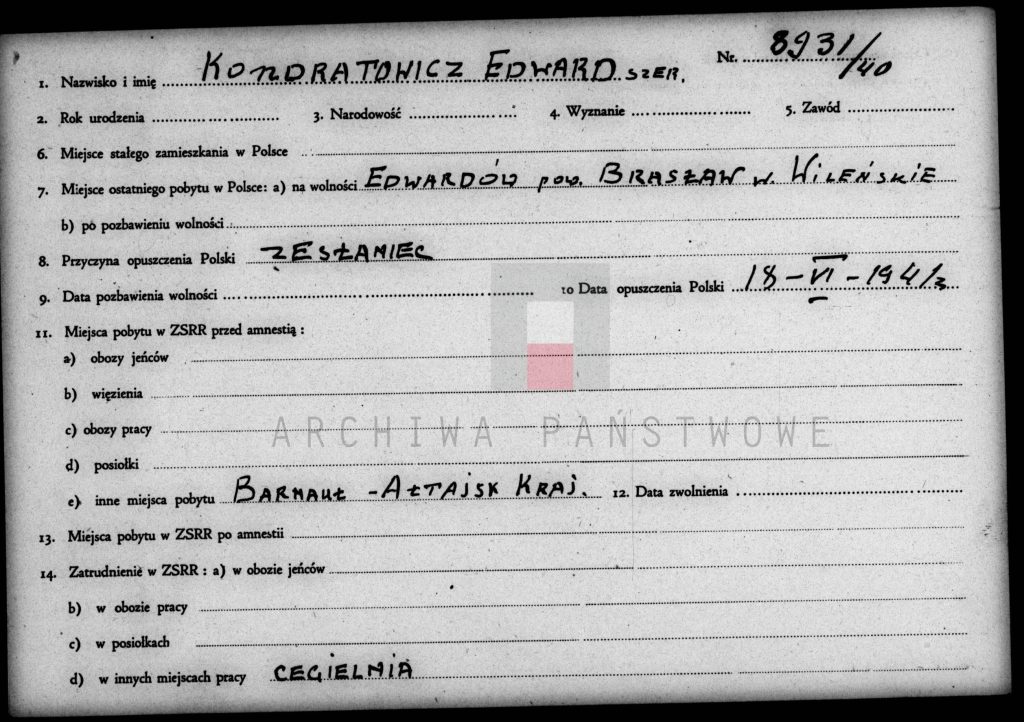 Nr. 8931/40
1. Nazwisko i imię KONDRATOWICZ EDWARD SZER.
2. Rok urodzenia 3. Narodowość 4. Wyznanie 5. Zawód
6. Miejsce stałego zamieszkania w Polsce
7. Miejsce ostatniego pobytu w Polsce: a) na wolności EDWARDÓW pow. BRASŁAW w. WILEŃSKIE
b) po pozbawieniu wolności
8. Przyczyna opuszczenia Polski ZESŁANIEC
9. Data pozbawienia wolności 10 Data opuszczenia Polski 18-VI-1941
11. Miejsca pobytu w ZSRR przed amnestią :
a) obozy jeńców
b) więzienia
c) obozy pracy
d) posiołki
e) inne miejsca pobytu BARNAUŁ - AŁTAJSK KRAJ. 12. Data zwolnienia
13. Miejsca pobytu w ZSRR po amnestii
14. Zatrudnienie w ZSRR : a) w obozie jeńców
b) w obozie pracy
c) w posiołkach
d) w innych miejscach pracy CEGIELNIA
ARCHIWA PAŃSTWOWE